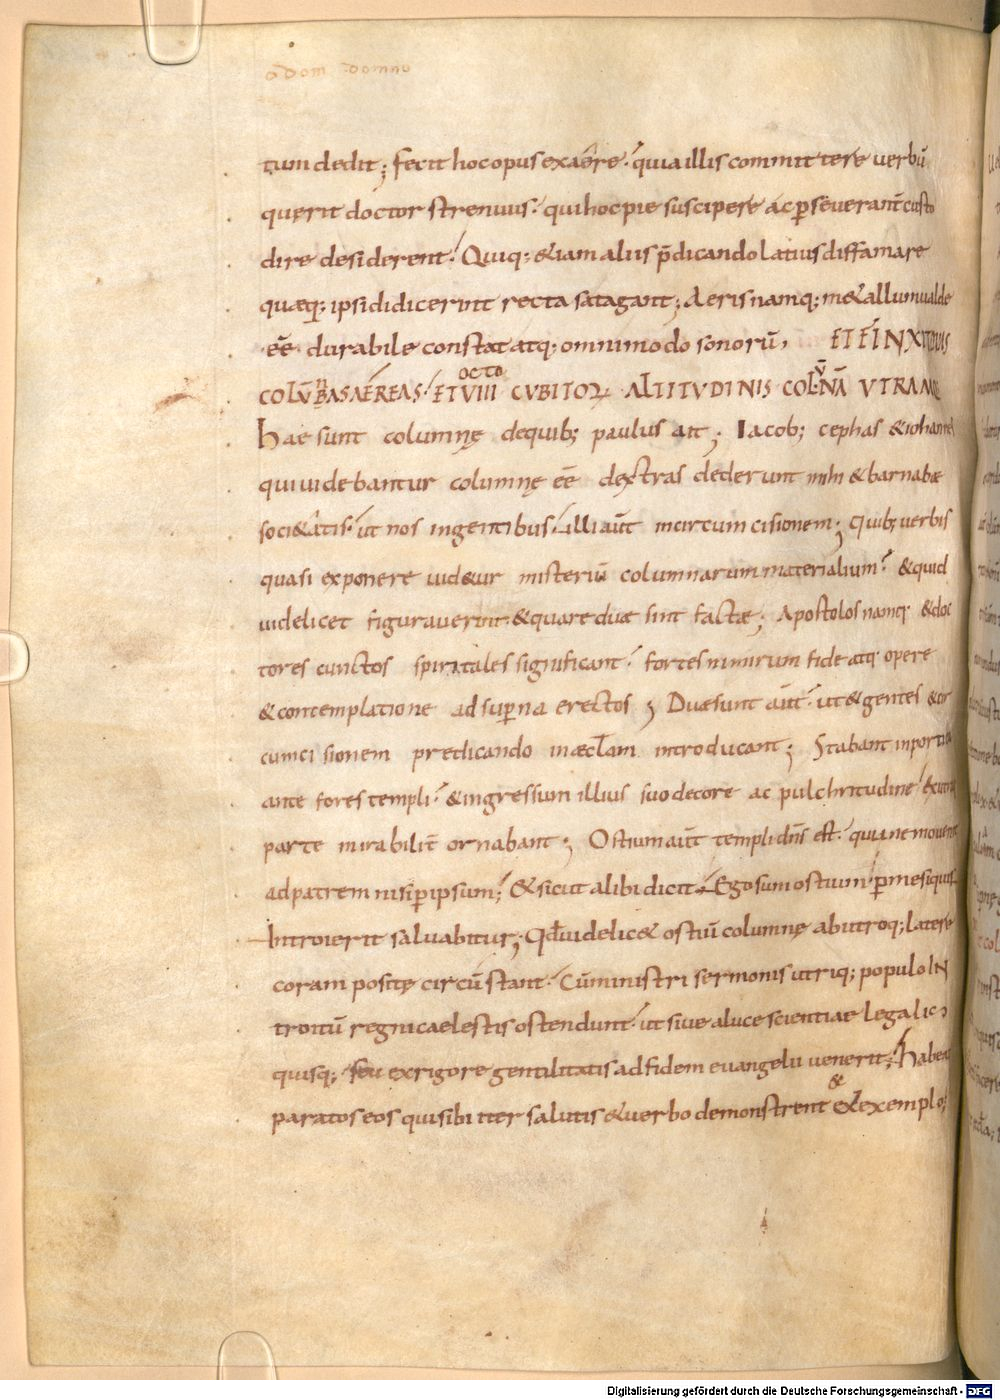 adom domno
tum dedit; fecit hoc opus ex aere. quia illis committere verbū
querit doctor strenuus. qui hoc pie suscipere ac pseverant̄ custo
dire desiderent. Quiq; &iam aliis p̄dicando latius diffamare
quæq; ipsi didicerint recta satagant; Aeris namq; m&allum ualde
eē durabile constat atq; omnimodo sonorū, ET FINXIT DUAS
COLŪNBAS AEREAS. ET VIII OCTO CVBITOR̄ ALTITVDINIS COLVNĀ VTRAMQ
Hae sunt columnę de quib; paulus ait; Iacob; cephas & iohannes
qui uidebantur columnę eē dextras dederunt mihi & barnabæ
soci&atis. ut nos in gentibus. illi aūt in circumcisionem; Quib; verbis
quasi exponere uid&ur misteriū columnarum materialium. & quid
uidelicet figuraverint & quare duæ sint factæ; Apostolos namq; & doc
tores cunctos spiritales significant. fortes nimirum fide atq; opere
& contemplatione ad superna erectos; Duæ sunt aūt. ut & gentes & cir
cumcisionem predicando in æcclam introducant; Stabant in porticu
ante fores templi. & ingressum illius suo decore ac pulchritudine ex utraq
parte mirabilit̄ ornabant; Ostium aūt templi dn̄s est. quia nemo uenit
ad patrem nisi p ipsum; & sicut alibi dicit. Ego sum ostium. p me siquis
Introierit saluabitur; Qd̄ uidelic& ostiū columnę ab utroq; latere
coram positę circū stant. Cū ministri sermonis utriq; populo IN
troitū regni caelestis ostendunt. ut sive a luce scientiae legalis
quisq; seu ex rigore gentilitatis ad fidem evangelii venerit. habeat
paratos eos qui sibi iter salutis & verbo demonstrent & & exemplo;